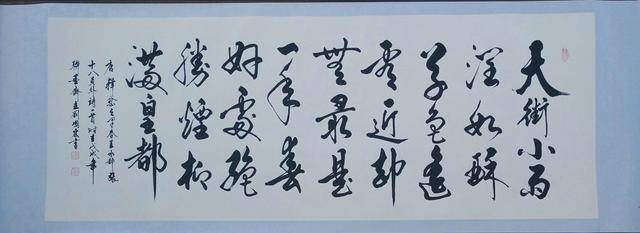 天街小雨
潤如酥
草色遙
看近却
無最是
一年春
好處絕
勝煙柳
滿皇都
唐韓愈早春呈水部張
十八員外詩一首時在戊戌年
齋主劉書